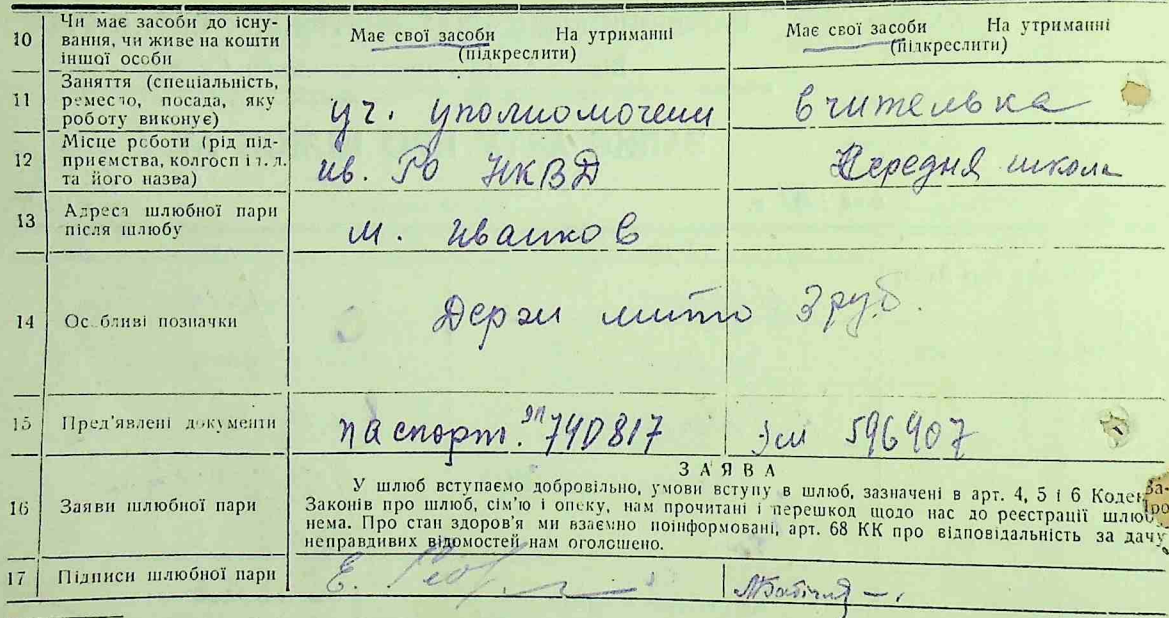 10 Чи має засоби до існу-
вання, чи живе на кошти
іншої особи
Має свої засоби На утриманні
(підкреслити)
Має свої засоби На утриманні
(підкреслити)
11 Заняття (спеціальність,
ремесло, посада, яку
роботу виконує)
уч. уполномочени
вчителька
12 Місце роботи (рід під-
приємства, колгосп і т. д.
та його назва)
ив. РО НКВД
Середня школа
13 Адреса шлюбної пари
після шлюбу
м. Иванков
14 Особливі позначки
Держ мито 3 руб.
15 Пред'явлені документи
паспорт. 740817
596907
16 Заяви шлюбної пари
ЗАЯВА
У шлюб вступаємо добровільно, умови вступу в шлюб, зазначені в арт. 4, 5 і 6 Кодек
Законів про шлюб, сім'ю і опеку, нам прочитані і перешкод щодо нас до реєстрації шлюб
нема. Про стан здоров'я ми взаємно поінформовані, арт. 68 КК про відповідальність за дачу
неправдивих відомостей нам оголошено.
17 Підписи шлюбної пари